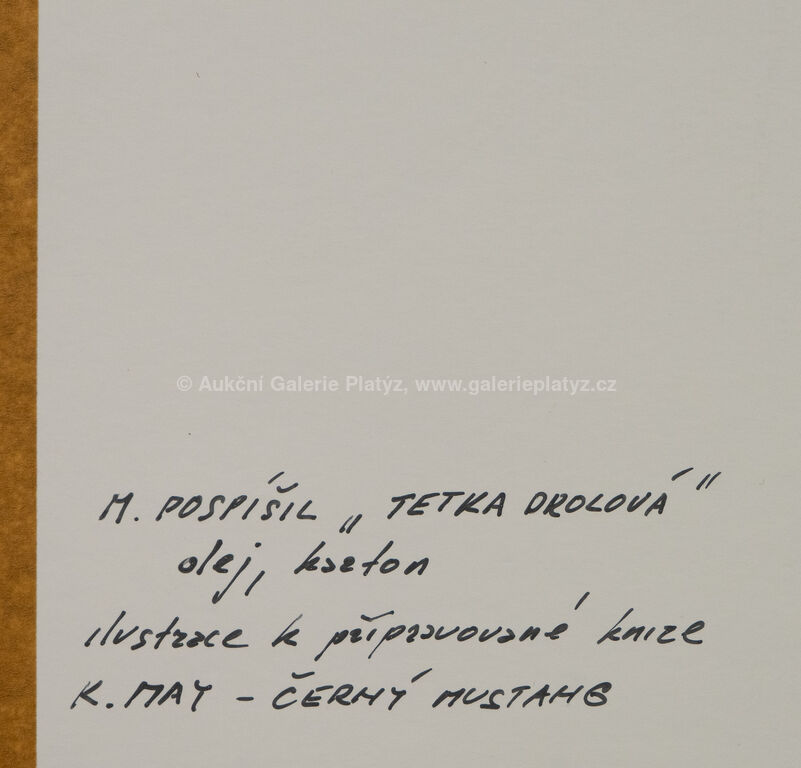 © Aukční Galerie Platýz, www.galerieplatyz.cz
M. POSPÍŠIL „ TETKA DROLOVÁ "
olej, karton
ilustrace k připravované knize
K. MAY - ČERNÝ MUSTANG